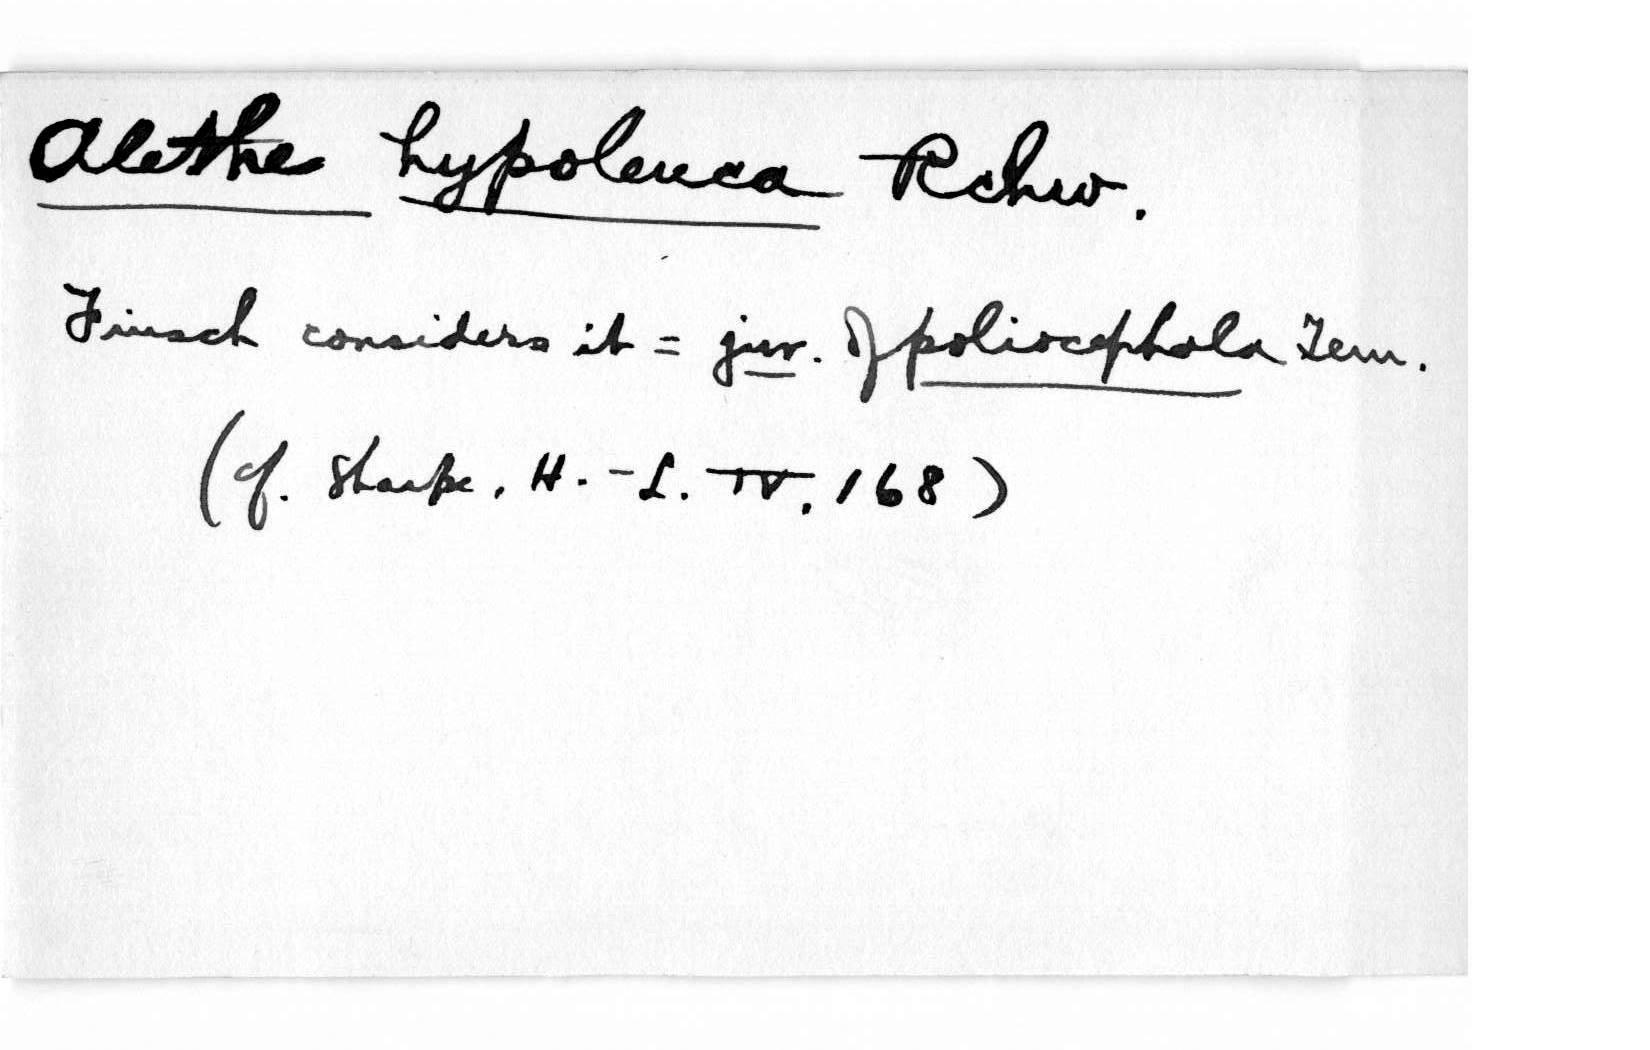 Alethe hypoleuca Rchw.
Finsch considers it = juv. of poliocephala Tem.
(cf. Sharpe, H.-L. IV, 168)